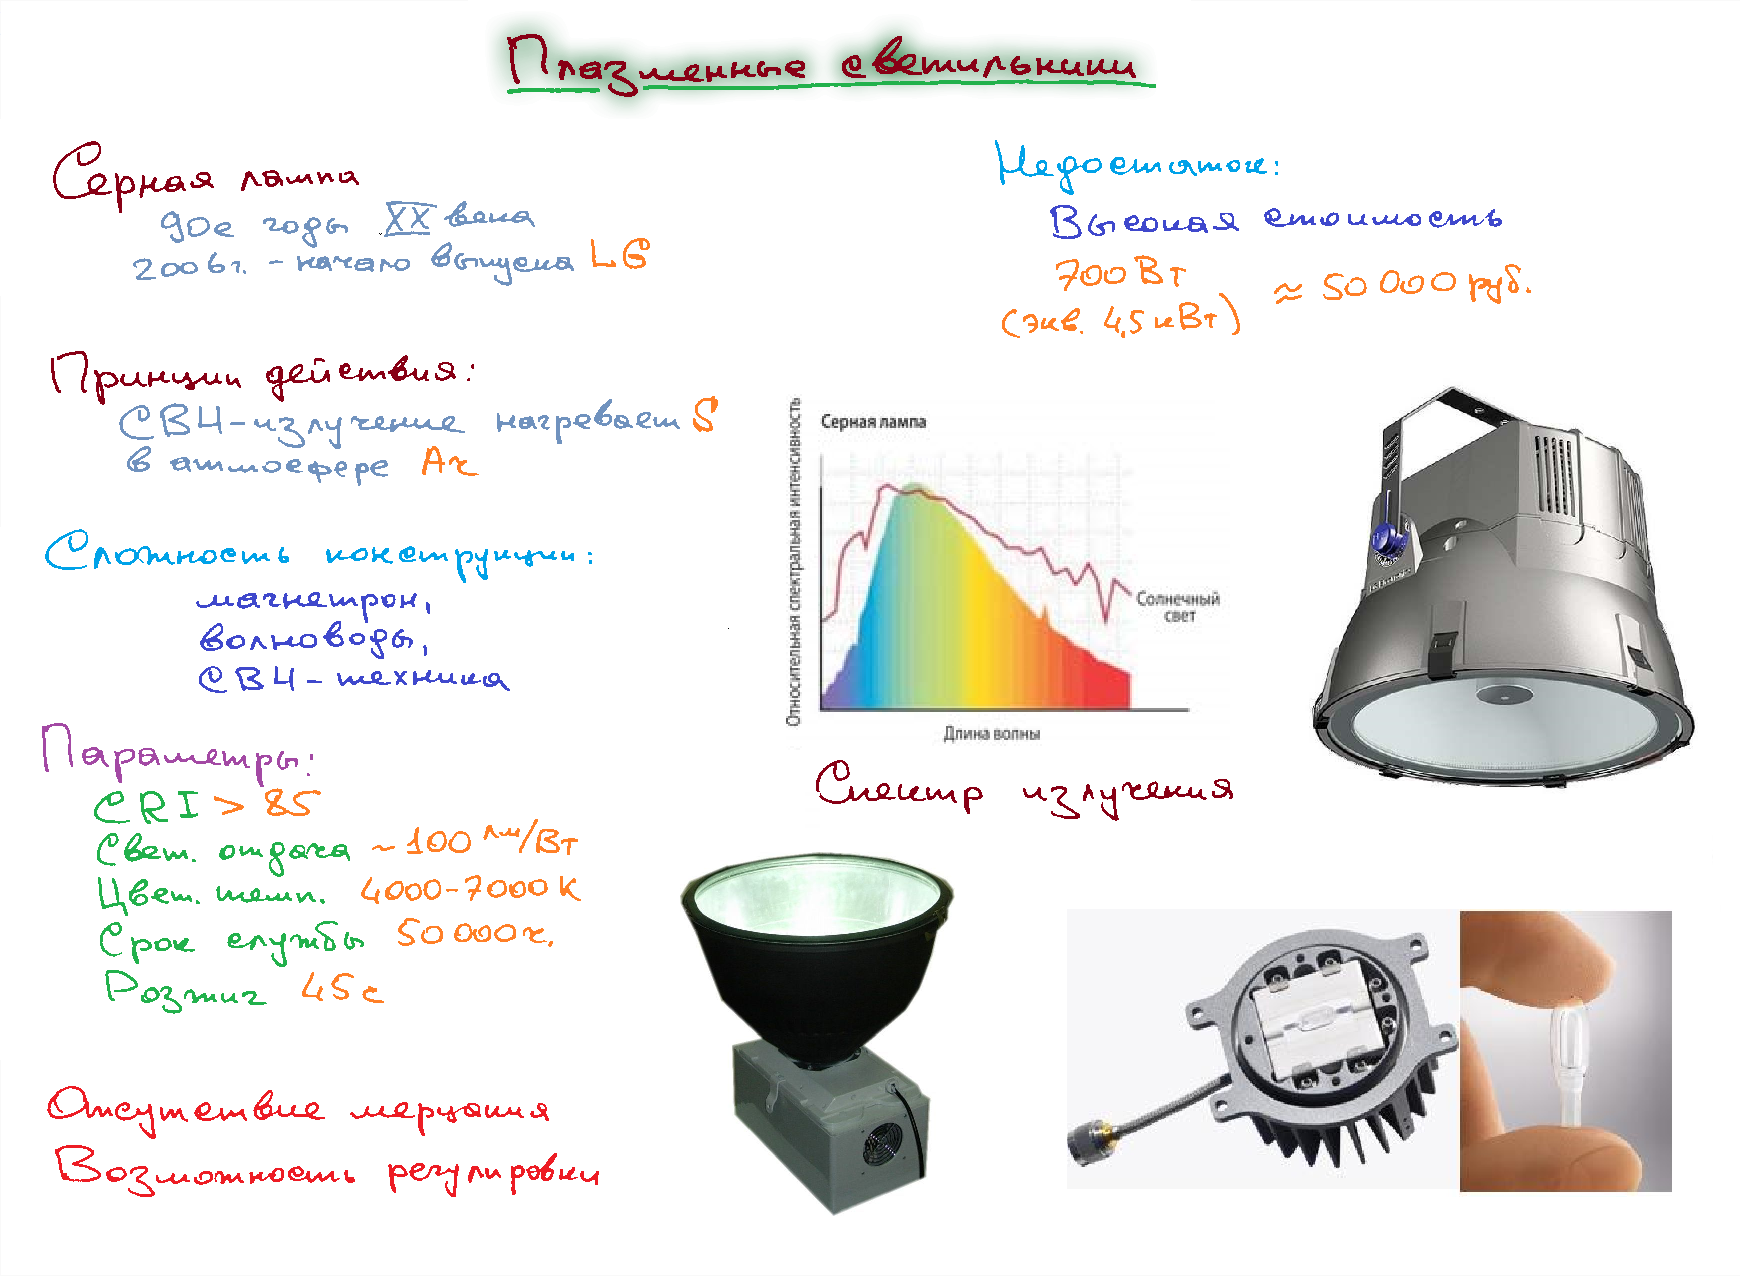 Плазменные светильники
Серная лампа
90е годы XX века
2006г. - начало выпуска LG
Принцип действия:
СВЧ-излучение нагревает S
в атмосфере Ar
Сложность конструкции:
магнетрон,
волноводы,
СВЧ-техника
Параметры:
CRI > 85
Свет. отдача ~100 лм/Вт
Цвет. темп. 4000-7000К
Срок службы 50 000ч.
Розжиг 45с
Отсутствие мерцания
Возможность регулировки
Недостаток:
Высокая стоимость
700Вт
(экв. 4,5 кВт) ≈ 50 000 руб.
Относительная спектральная интенсивность
Серная лампа
Солнечный
свет
Длина волны
Спектр излучения